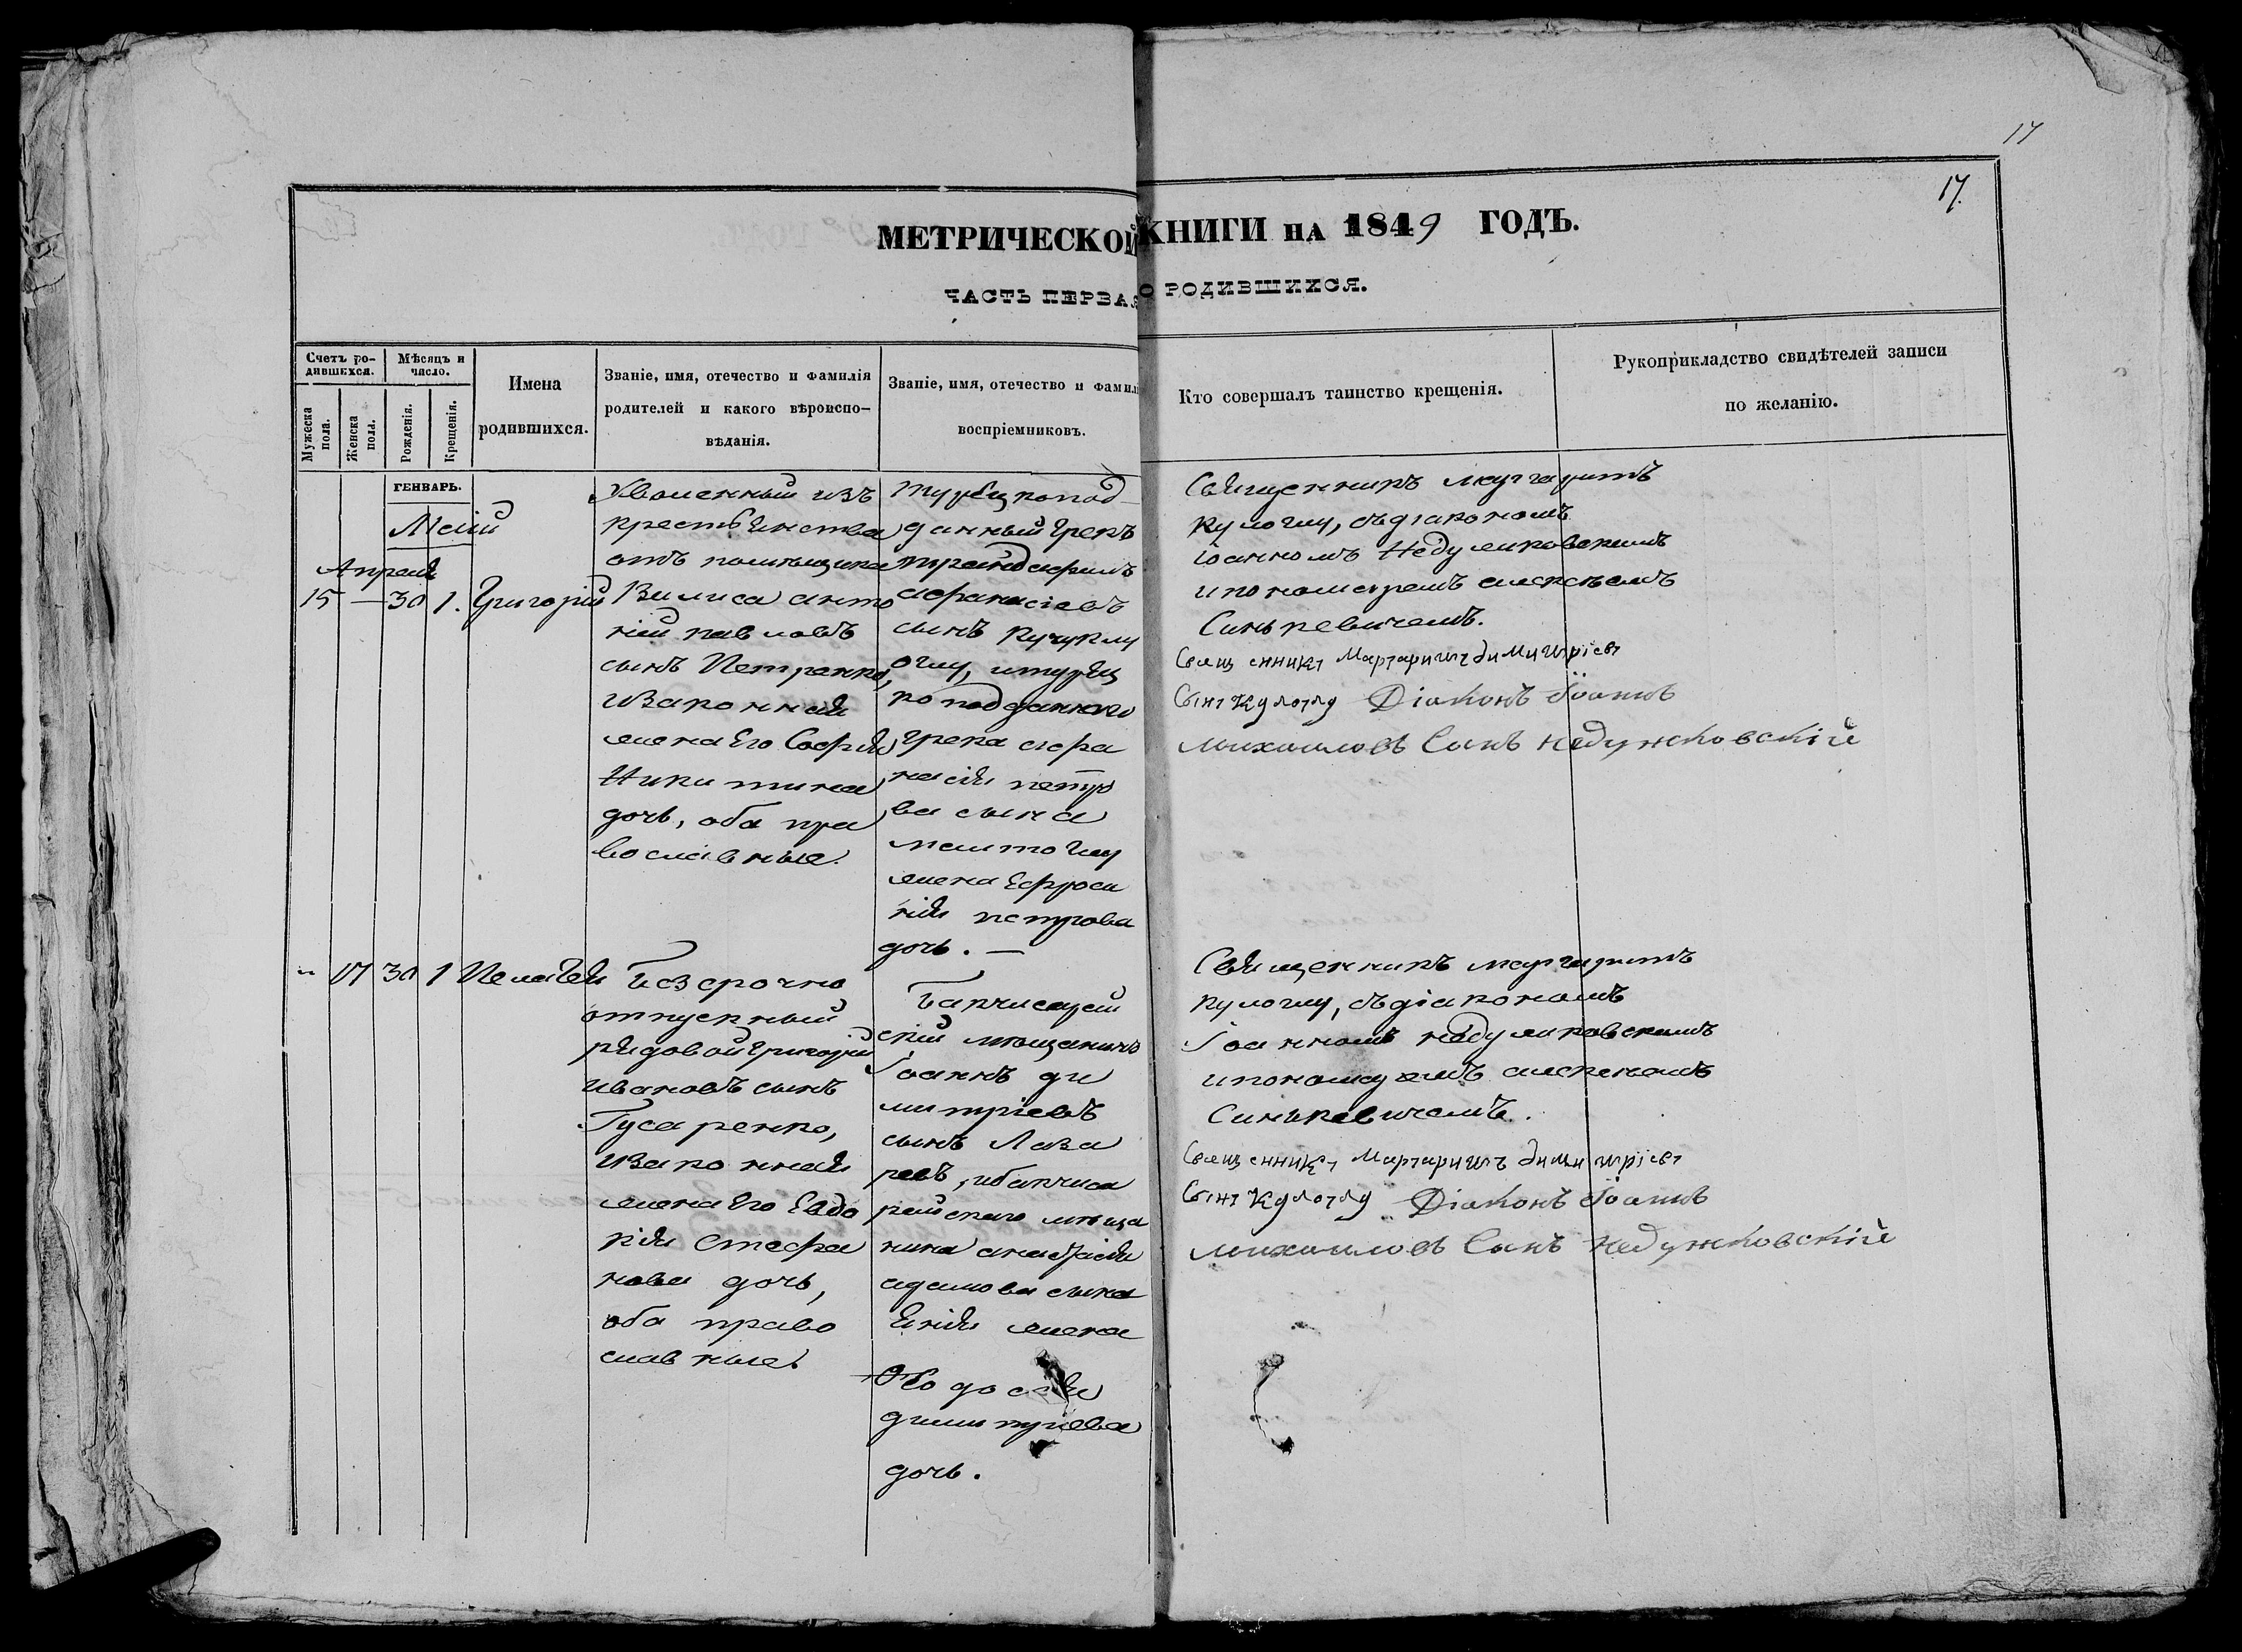 17
17.
МЕТРИЧЕСКОЙ КНИГИ НА 1849 ГОДЪ.
ЧАСТЬ ПЕРВАЯ О РОДИВШИХСЯ.
Счетъ родившихся.
Мужеска пола.
Женска пола.
Мѣсяцъ и число.
Рожденія.
Крещенія.
Имена родившихся.
Званіе, имя, отечество и фамилія
родителей и какого вѣроиспо-
вѣданія.
Званіе, имя, отечество и фамил
воспріемниковъ.
Кто совершалъ таинство крещенія.
Рукоприкладство свидѣтелей записи
по желанію.
ГЕНВАРЬ.
Маій
Апреля
15 — 30 1. Григорій
Уволенный изъ
крестьянства
отъ помѣщика
Вилиса анто
ній павловъ
сынъ Петренко,
изаконная
жена Его Софія
Никитина
дочь, оба пра
вославные.
Турецкопод
данный Грекъ
трандафилъ
афанасіевъ
сынъ кучуклу
оглу, итурец
коподданнаго
грека афа
насія петро
ва сына
оглу
жена Ефроси
нія петрова
дочь. —
Священникъ маргаритъ
кулоглу, съдіакономъ
Іоанномъ Недужковскимъ
ипономаремъ алексѣемъ
Синькевичемъ.
Священникъ Маргаритъ димитріевъ
Сынъ Кулоглу Діаконъ Іоаннъ
михаиловъ Сынъ Недужковскій
" 17 30 1 Пелагея
Безсрочно
отпускный
рядовой Григорій
Ивановъ сынъ
Гусаренко,
изаконная
жена Его Евдо
кія Стефа
нова дочь,
оба право
славные.
Бахчисарай
скій мѣщанинъ
Іоаннъ ди
митріевъ
сынъ Лаза
ревъ, ибахчиса
райскаго мѣща
нина анастасія
адамова сына
жена
Феодосія
димитріева
дочь.
Священникъ маргаритъ
кулоглу, съдіакономъ
Іоанномъ недужковскимъ
ипономаремъ алексѣемъ
Синькевичемъ.
Священникъ Маргаритъ димитріевъ
Сынъ Кулоглу Діаконъ Іоаннъ
михаиловъ Сынъ Недужковскій